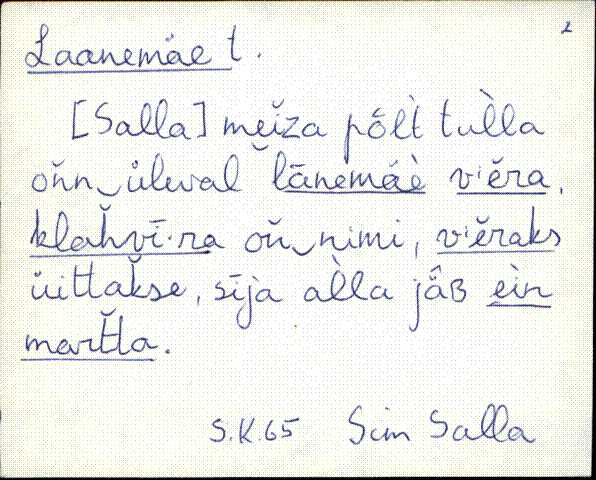 2
Laanemäe t.
[Salla] meĭza põ̀lt tùlla
oňn‿ülewal lānemäè viĕra,
klaȟvī·ra oň‿nimi, viĕraks
üittaǩse, sīja àlla jä̂ʙ eìn
marťta.
S.K.65 Sim Salla